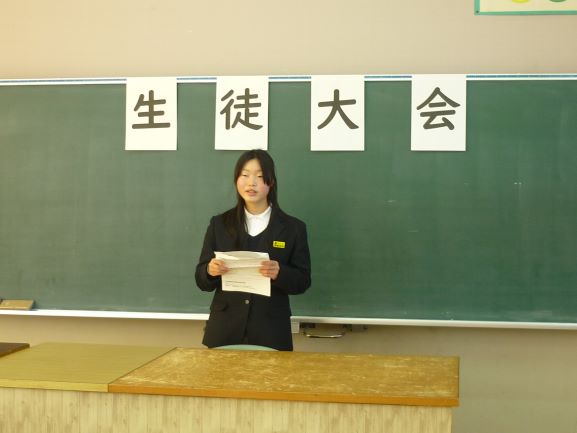 生徒大会